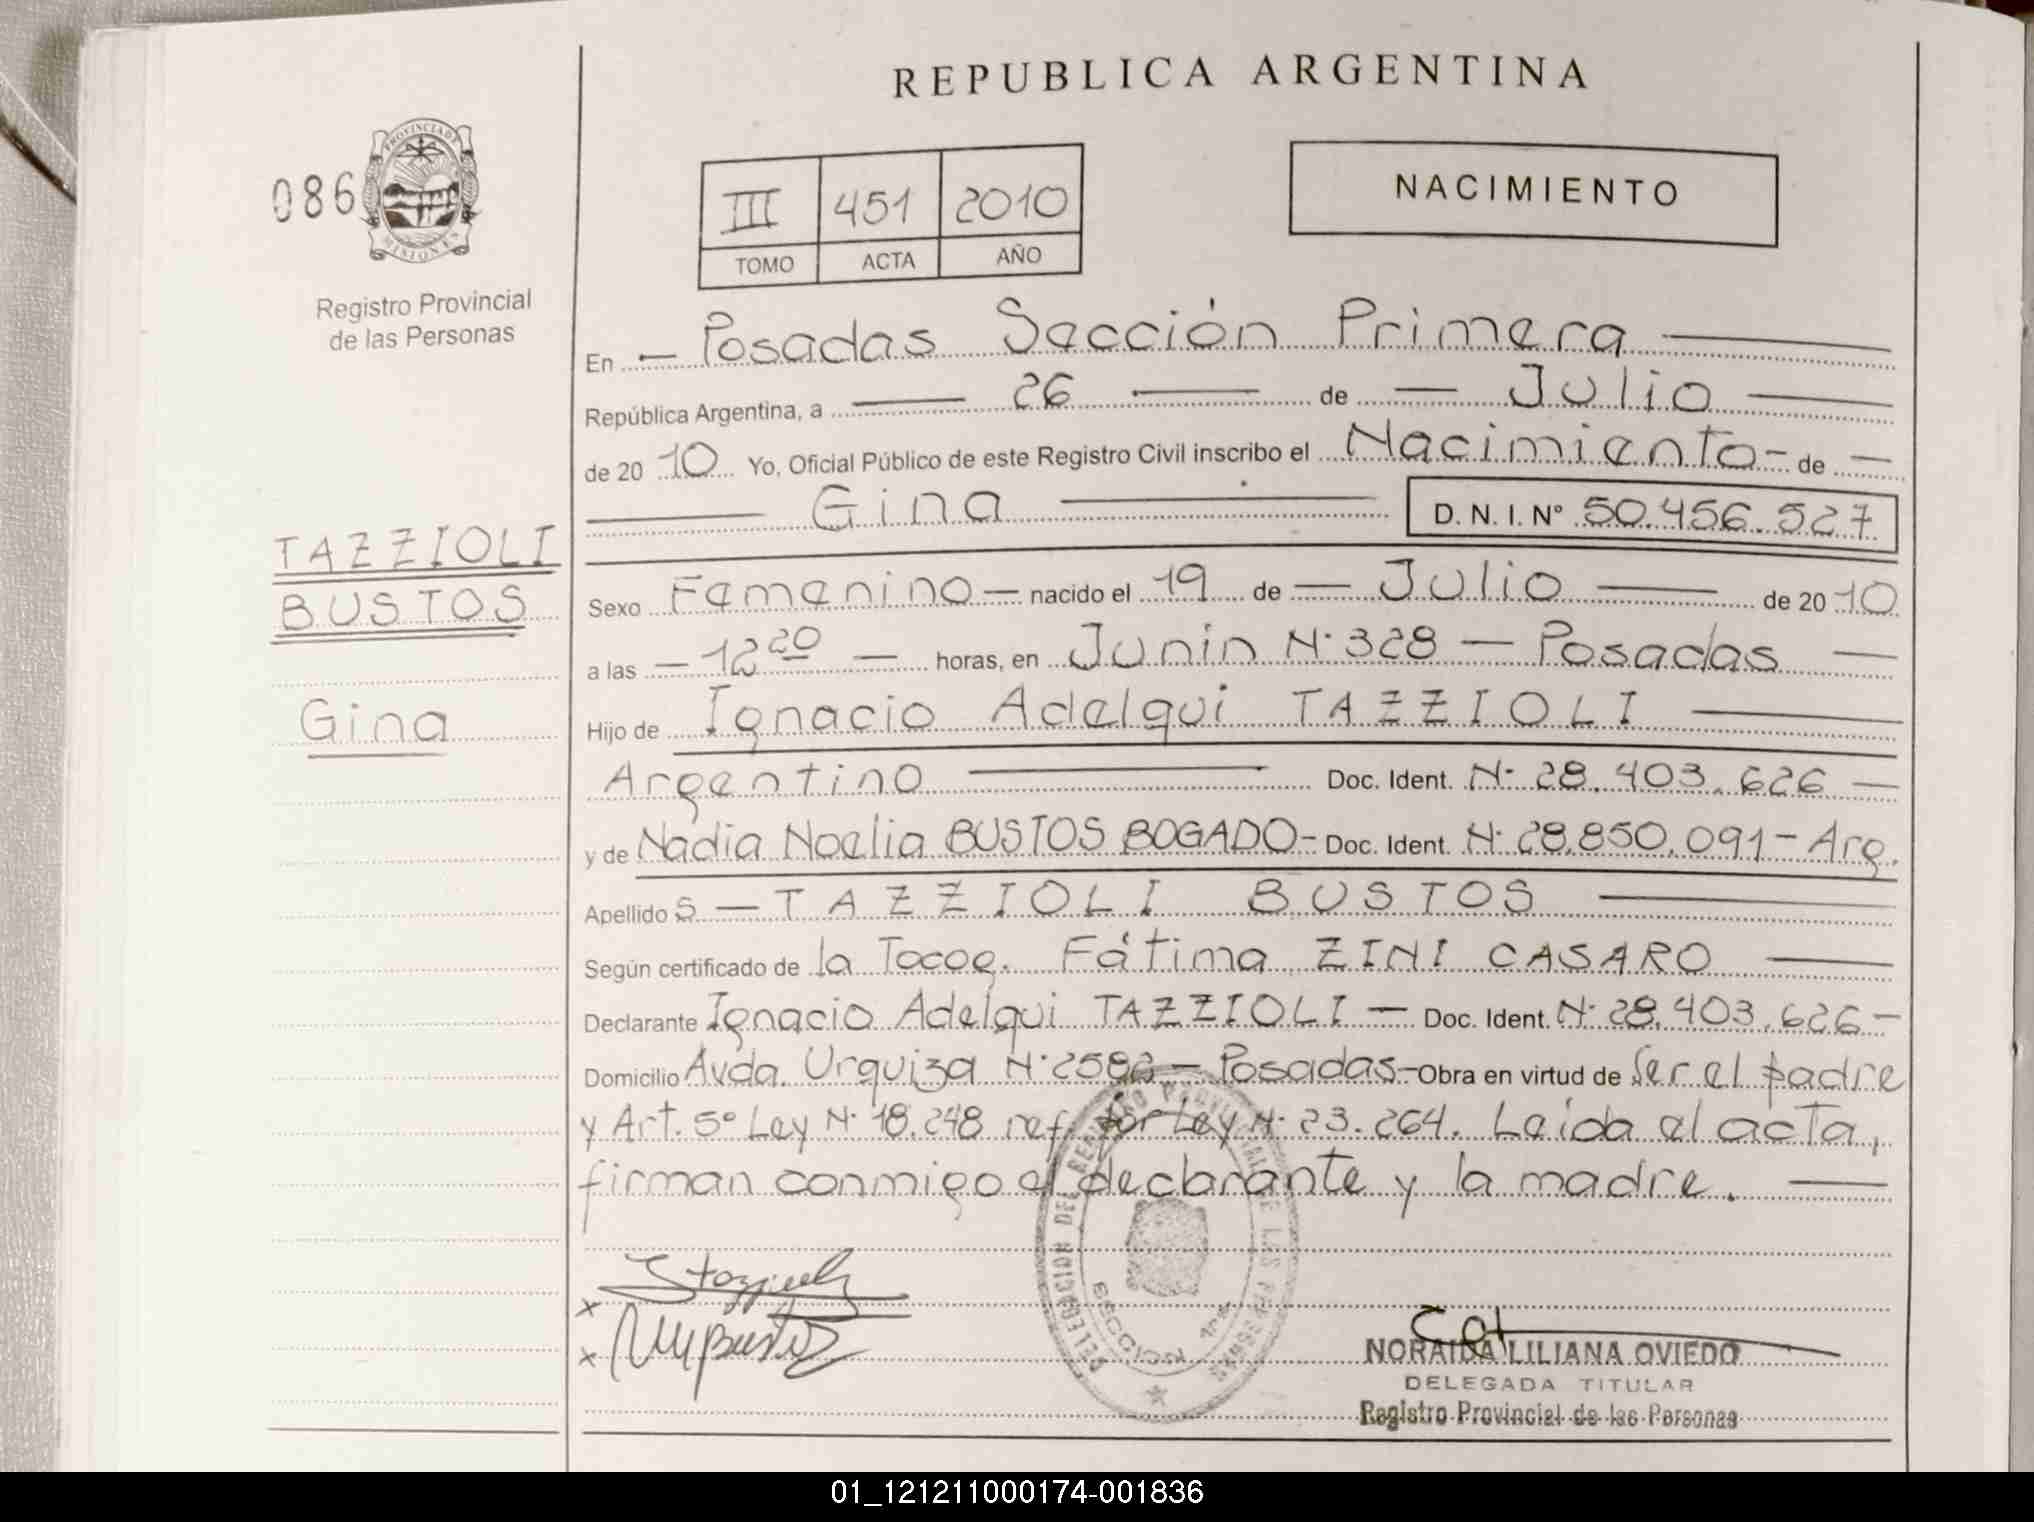 REPUBLICA ARGENTINA
086
PROVINCIA DE
MISIONES
Registro Provincial
de las Personas
III 451 2010
TOMO ACTA AÑO
NACIMIENTO
En — Posadas Sección Primera —
República Argentina, a — 26 — de — Julio —
de 20 10 Yo, Oficial Público de este Registro Civil inscribo el Nacimiento - de —
— Gina — D. N. I. Nº 50.456.527
TAZZIOLI
BUSTOS
Gina
Sexo Femenino — nacido el 19 de — Julio — de 20 10
a las — 12 20 — horas, en Junin N· 328 — Posadas —
Hijo de Ignacio Adelqui TAZZIOLI —
Argentino — Doc. Ident. N· 28.403.626 —
y de Nadia Noelia BUSTOS BOGADO - Doc. Ident. N· 28.850.091 - Arg.
Apellido s — TAZZIOLI BUSTOS —
Según certificado de la Tocog. Fátima ZINI CASARO —
Declarante Ignacio Adelqui TAZZIOLI — Doc. Ident. N· 28.403.626 -
Domicilio Avda. Urquiza N· — Posadas - Obra en virtud de Ser el padre
y Art. 5º Ley N· 18.248 ref. por Ley N· 23.264. Leida el acta,
firman conmigo el declarante y la madre. —
DELEGACION DEL REGISTRO PROVINCIAL DE LAS PERSONAS
SECCION 1ra
x
x
NORAIDA LILIANA OVIEDO
DELEGADA TITULAR
Registro Provincial de las Personas
01_121211000174-001836